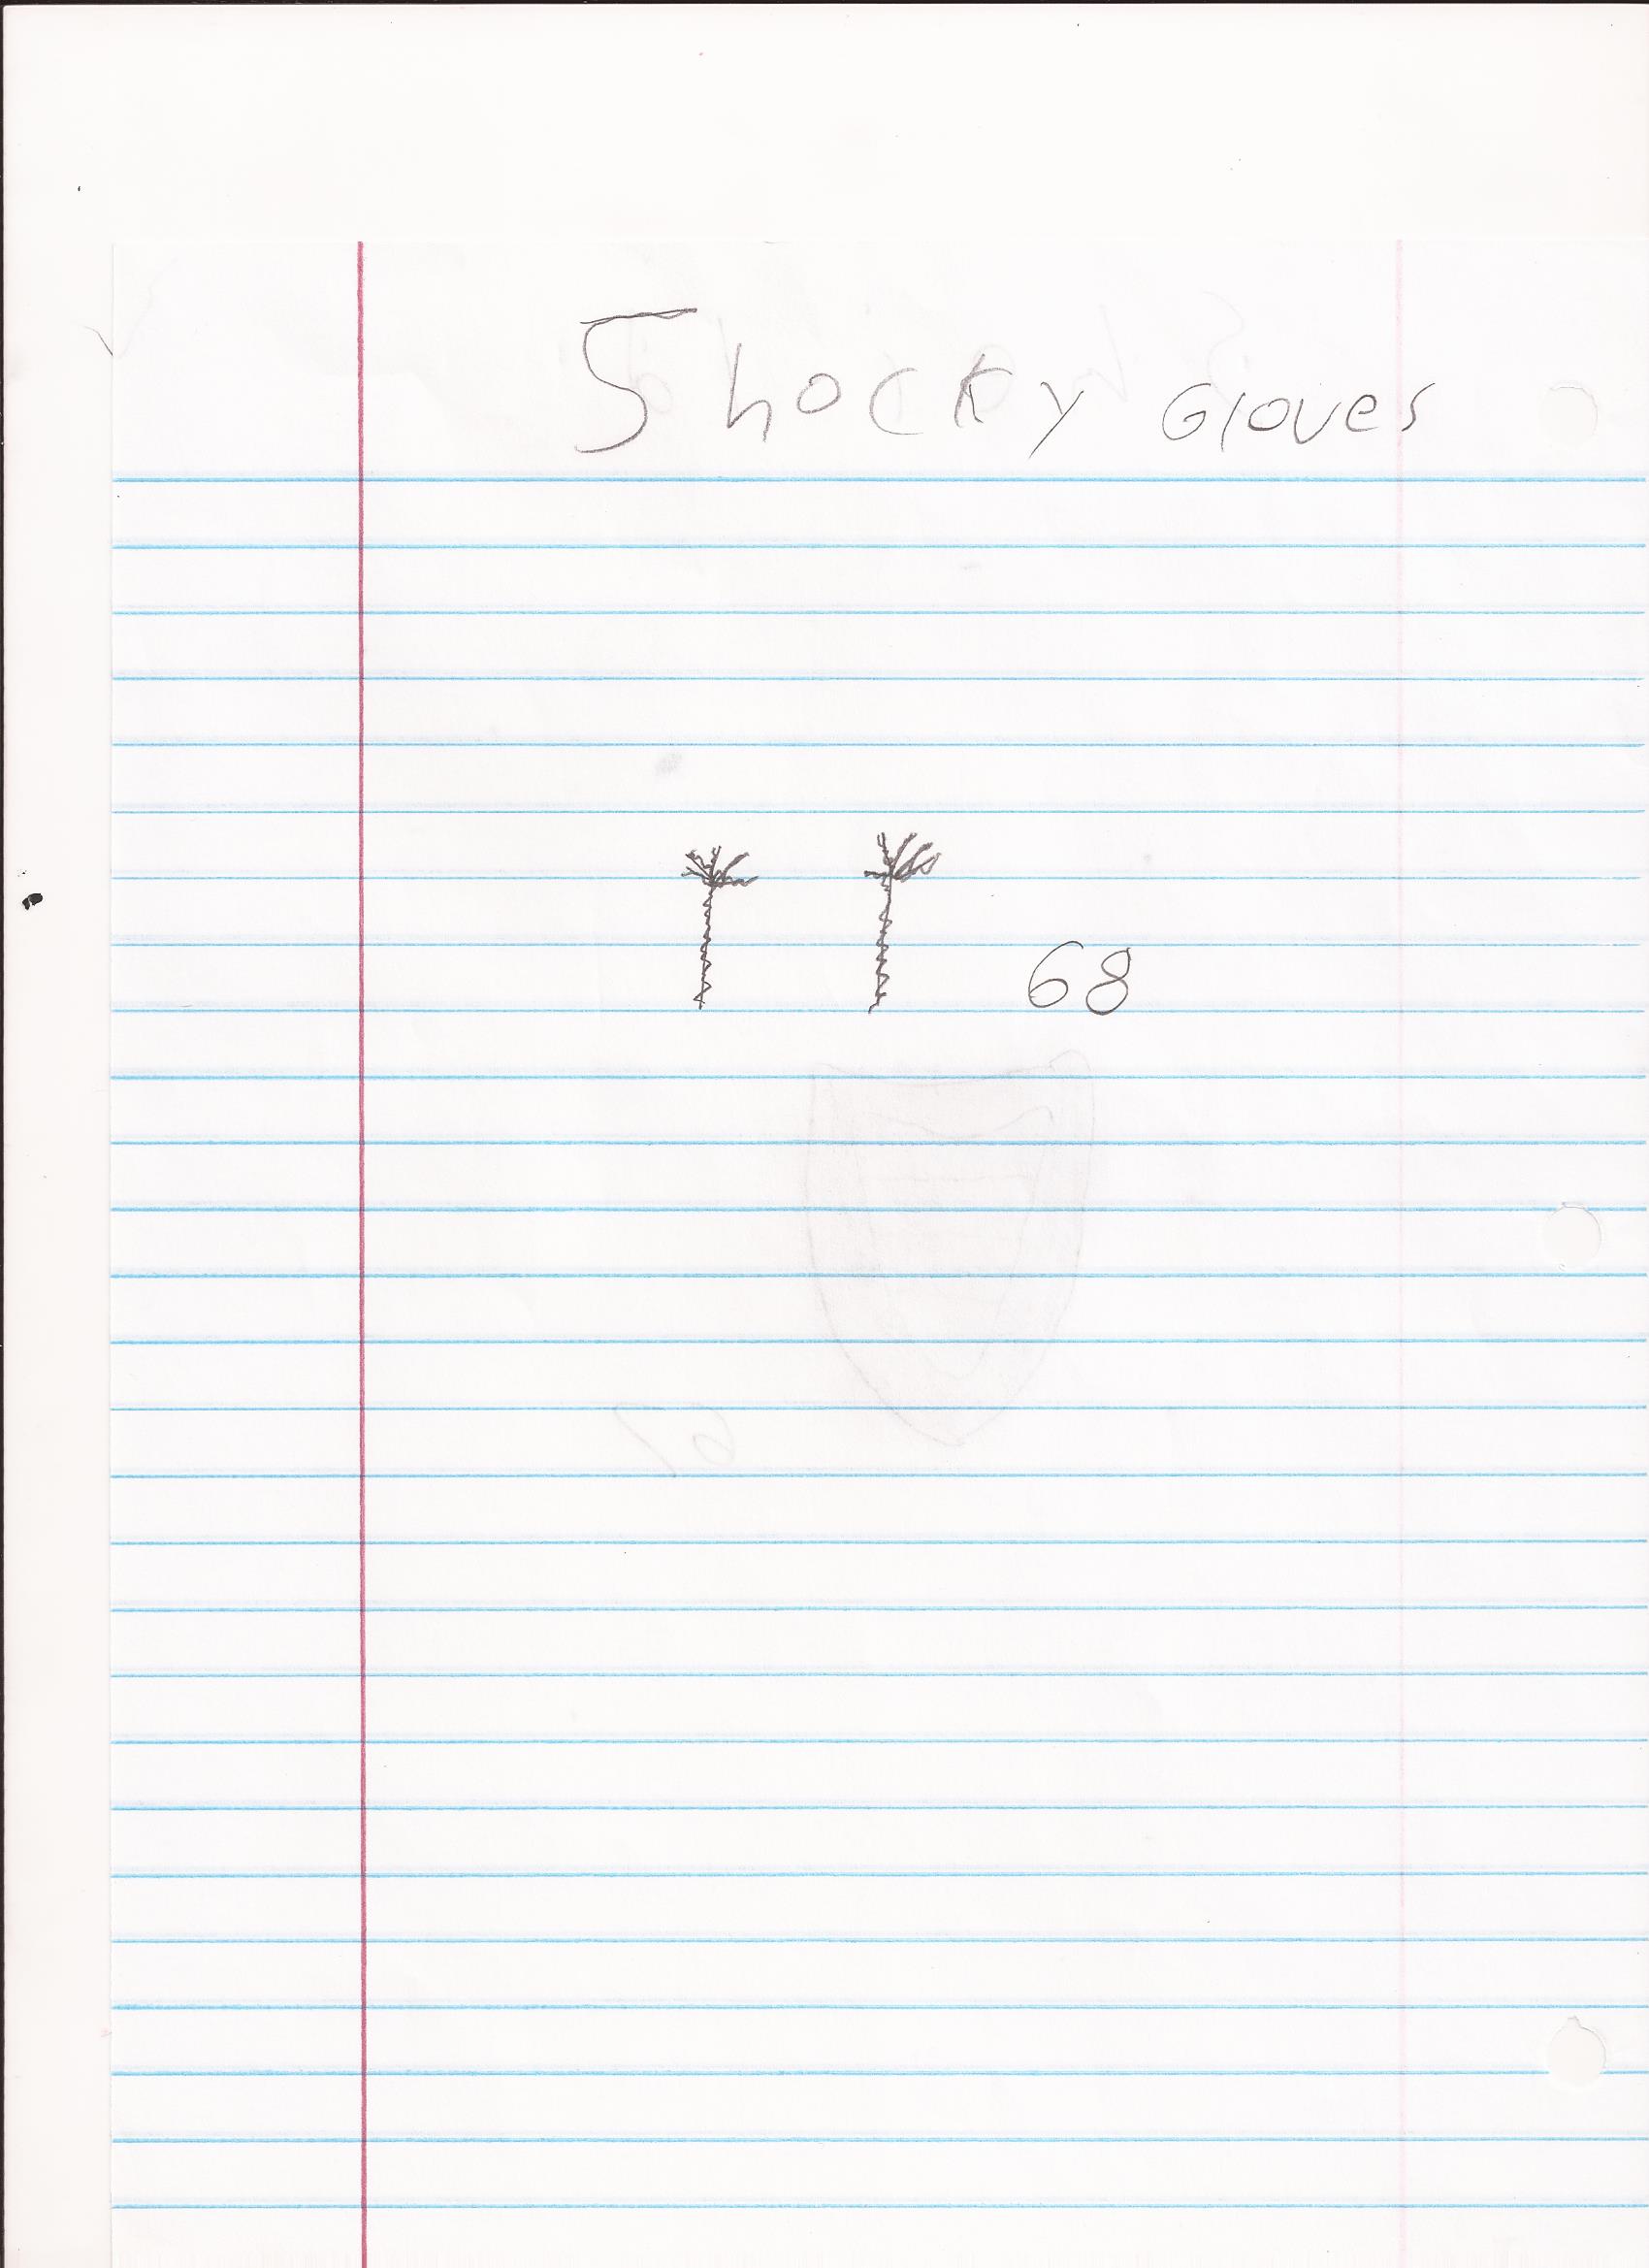 Shocky Gloves
68
67